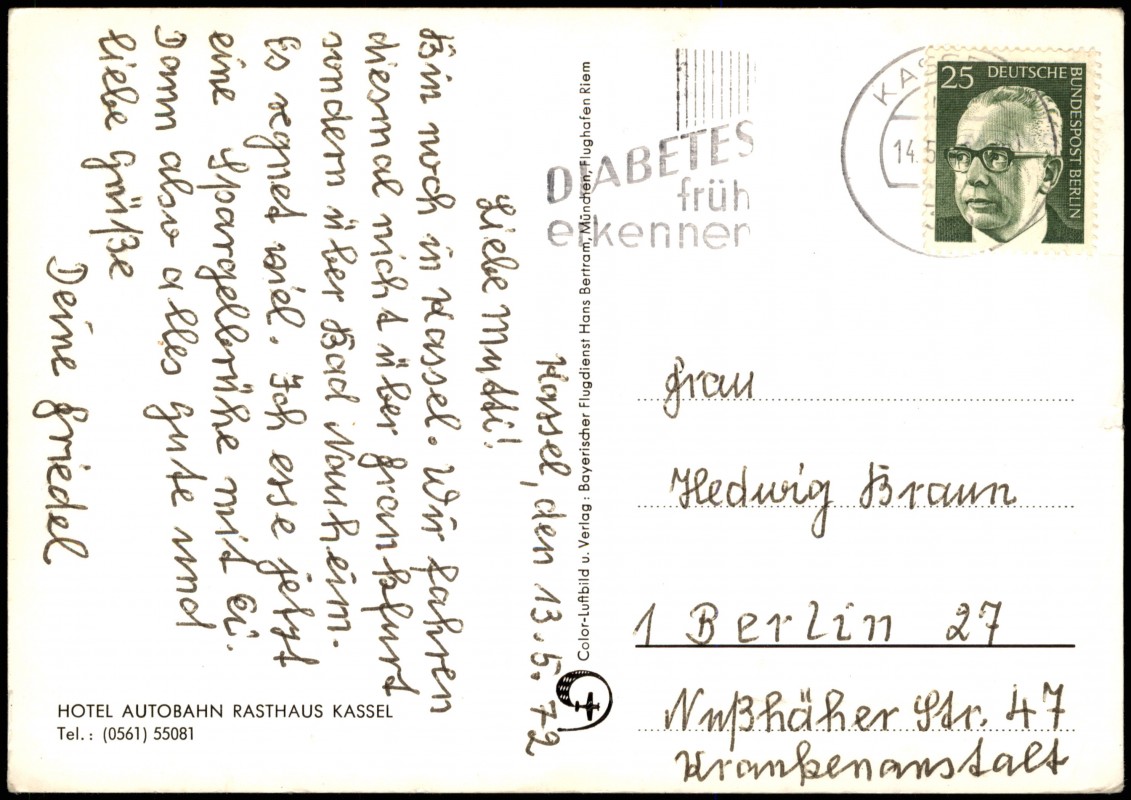 Kassel, den 13.5.72
Liebe Mutti!
Bin noch in Kassel. Wir fahren
diesmal nicht über Frankfurt
sondern über Bad Nauheim.
Es regnet viel. Ich esse jetzt
eine Spargelbrühe mit Ei.
Dann also alles Gute und
liebe Grüße
Deine Friedel
HOTEL AUTOBAHN RASTHAUS KASSEL
Tel.: (0561) 55081
Color-Luftbild u. Verlag: Bayerischer Flugdienst Hans Bertram, München, Flughafen Riem
DIABETES
früh
erkennen
KASSEL
14.5.
25 DEUTSCHE BUNDESPOST BERLIN
Frau
Hedwig Braun
1 Berlin 27
Nußhäher Str. 47
Krankenanstalt